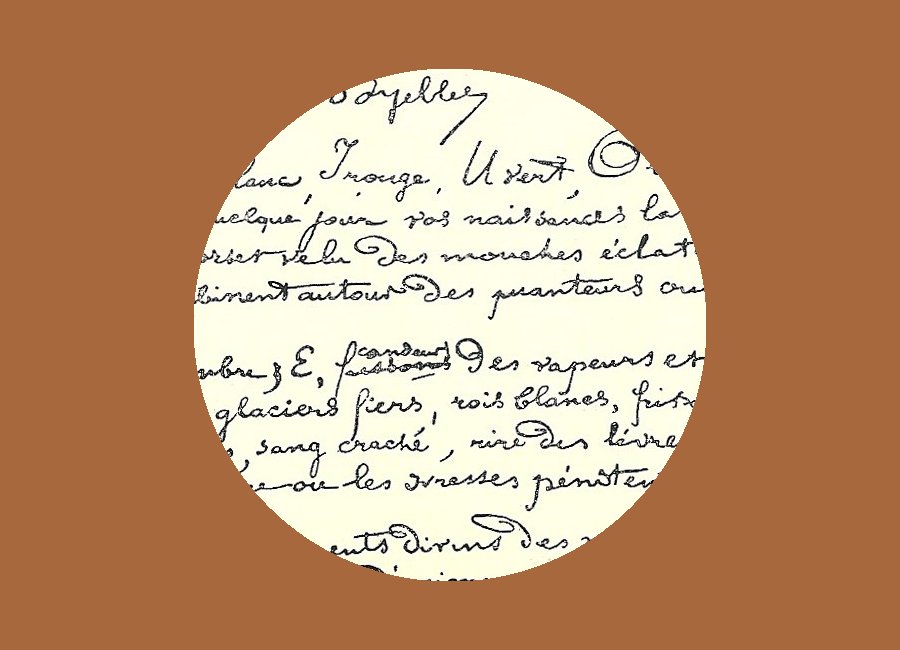 lanc, I rouge, U vert, O
quelque jour vos naissances la
orset velu des mouches éclat
binent autour des puanteurs cru
mbre; E, candeurs frissons des vapeurs et
glaciers fiers, rois blancs, friss
, sang craché, rire des lèvre
ou les ivresses péniten
ents divins des